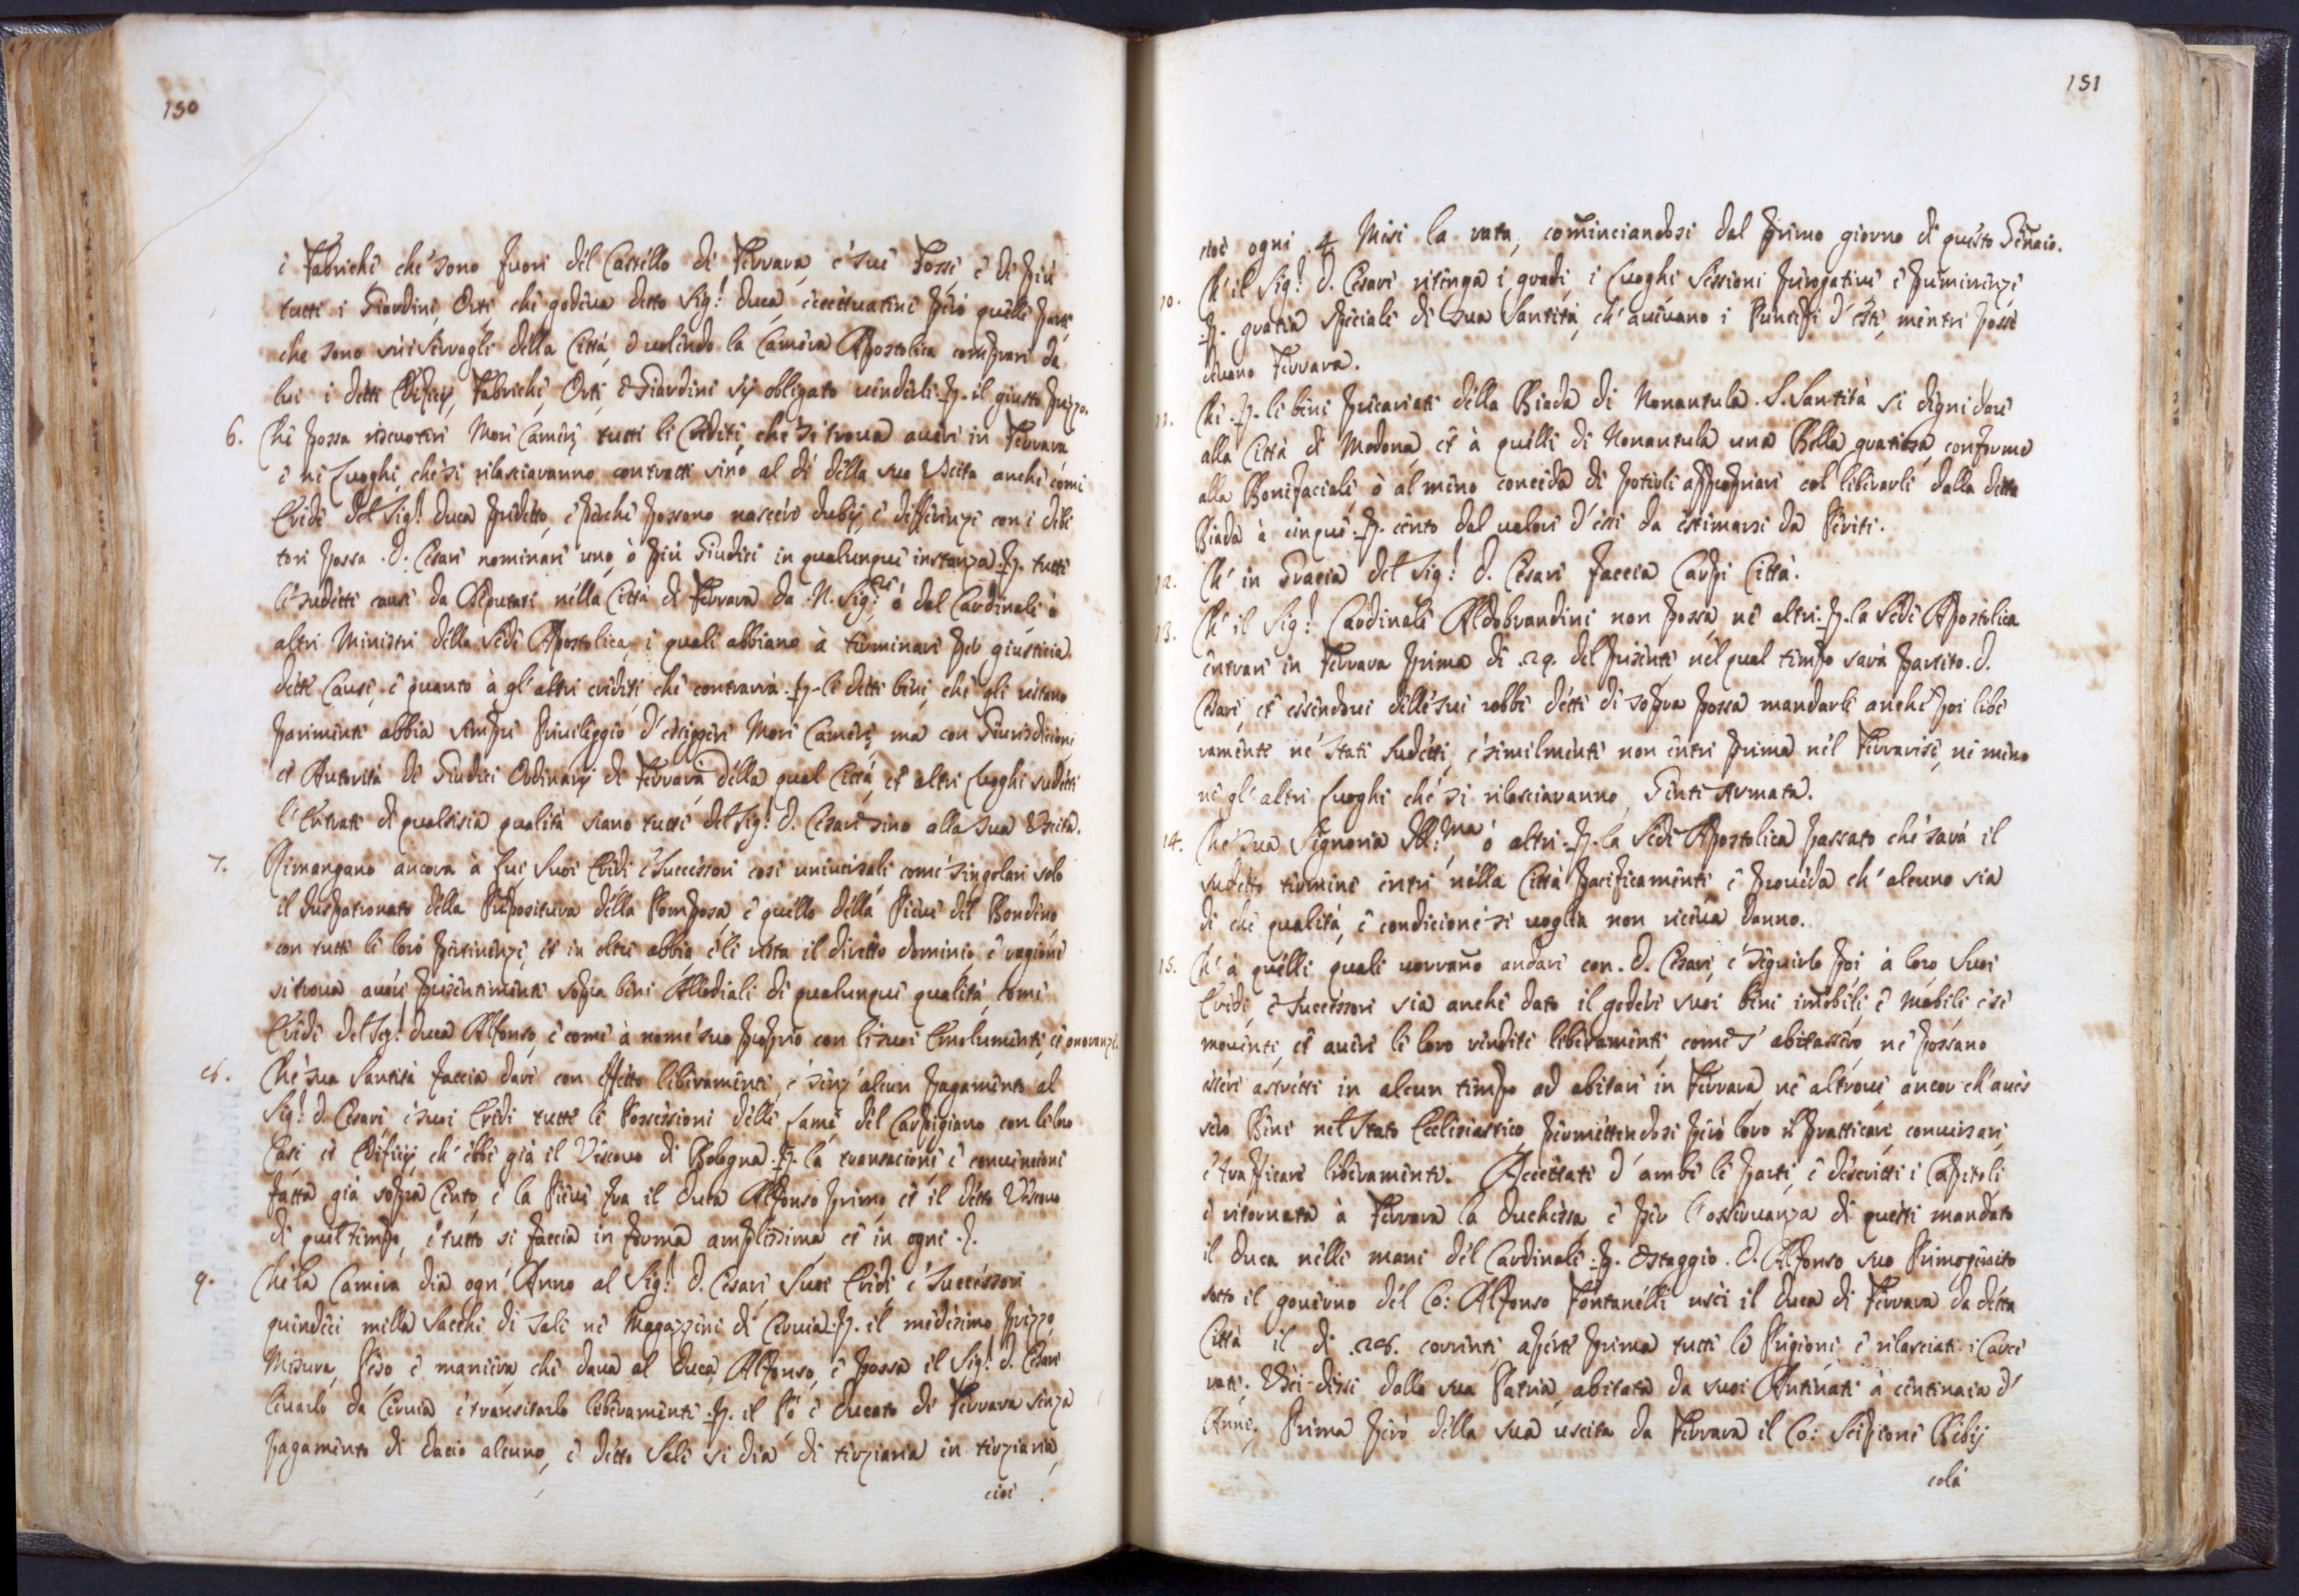 150
è Fabriche che sono fuori del Castello di Ferrara, e sue Fosse, e di più
tutti i Giardini, Orti, che godeva detto Sig.r Duca, eccettuatine però quelle parti
che sono necessarie della Città, e volendo la Camera Apostolica comprare da
lui i detti Edificij, Fabriche, Orti, e Giardini sij obbligato venderli .p. il giusto prezzo.
6. Che possa riscuotere More Camere tutti li Crediti, che si trova avere in Ferrara
e ne Luoghi, che si rilasciaranno contratti sino al dì della suo Uscita anche come
Erede del Sig.r Duca predetto, e perche possono nascere dubij, e differenze con i debi
tori possa .D. Cesare nominare uno, ò più Giudici in qualunque instanza .p. tutte
le sudette cause da deputarsi nella Città di Ferrara da .N. Sig.re ò dal Cardinale ò
altri Ministri della Sede Apostolica, i quali abbiano à terminare per giusticia
dette Cause, e quanto à gl'altri crediti, che contrarrà .p. li detti beni, che gli restano
parimente abbia sempre Privileggio d'essiggere More Camere, ma con Giurisdicione
et Autorità de Giudici Ordinarj di Ferrara, della qual Città, et altri Luoghi sudetti
l'Entrate di qualsisia qualità siano tutte del Sig.r D. Cesare sino alla sua Uscita.
7. Rimangano ancora à Lui, Suoi Eredi, e Successori così universali come singolari solo
il Juspatronato della Prepositura della Pomposa, e quello della Pieve del Bondeno
con tutte le loro pertinenze, et in oltre abbia, e li resta il diretto dominio, e ragione
si trova avere presentemente sopra beni Allodiali di qualunque qualità, come
Erede del Sig.r Duca Alfonso, e come à nome suo proprio con li suoi Emolumenti, et onoranze.
8. Che sua Santità faccia dare con effetto liberamente, e senz'alcun pagamento al
Sig.r D. Cesare, e suoi Eredi tutte le Possessioni delle Lame del Carpigiano con le loro
Case, et Edificij, ch'ebbe già il Vescovo di Bologna .p. la transacione, e convencione
fatta già sopra Cento, e la Pieve fra il Duca Alfonso primo, et il detto Vescovo
di quel tempo, e tutto si faccia in forma amplissima et in ogni .p.
9. Che la Camera dia ogn'Anno al Sig.r D. Cesare, Suoi Eredi e Successori
quindeci milla sacchi di sale ne Magazzini di Cervia .p. il medesimo prezzo,
Misura, Peso, e maniera, che dava al Duca Alfonso, e possa il Sig.r D. Cesare
levarlo da Cervia, e transitarlo liberamente .p. il Pò, e Ducato di Ferrara senza
pagamento di dacio alcuno, e detto Sale si dia di terziaria in terziaria,
cioè
151
cioè ogni .4. Mesi la rata, cominciandosi dal primo giorno di questo Genaio.
10. Ch'il Sig.r D. Cesare ritenga i gradi, i Luoghi, Sessioni, prerogative, e preminenze
.p. gratia speciale di sua Santità, ch'avevano i Prencipi d'Este, mentre posse
devano Ferrara.
11. Che .p. li beni precariati della Biada di Nonantula .S. Santità si degni dare
alla Città di Modona, et à quelli di Nonantula una Bella gratiosa, conforme
alla Bonifaciale, ò almeno conceda di poterli appropriare col liberarli dalla detta
Biada à cinque .p. cento del valore d'essi da estimarsi da Periti.
12. Ch'in Gracia del Sig.r D. Cesare faccia Carpi Città.
13. Ch'il Sig.r Cardinale Aldobrandini non possa, ne altri .p. la Sede Apostolica
entrare in Ferrara prima di .29. del presente, nel qual tempo sarà partito .D.
Cesare, et essendovi delle sue robbe dette di sopra possa mandarle anche poi libe
ramente ne' Stati sudetti, e similmente non entri prima nel Ferrarese, ne meno
ne gl'altri Luoghi che si rilasciaranno, Gente Armata.
14. Che Sua Signoria Ill.ma ò altri .p. la Sede Apostolica passato che sarà il
sudetto termine entri nella Città pacificamente, e proveda ch'alcuno sia
di che qualità, e condicione si voglia non riceva danno.
15. Ch'à quelli quali vorrano andare con .D. Cesare, e seguirlo poi à loro Suoi
Eredi, e Successori sia anche dato il godere suoi beni imobili, e Mobili, e se
moventi, et avere le loro rendite liberamente, come s'abitassero, ne possano
essere astretti in alcun tempo ad abitare in Ferrara, ne altrove, ancor ch'aves
sero Beni nel Stato Ecclesiastico, permettendosi però loro il pratticare, conversare,
e trafficare liberamente. Accettati d'ambe le parti, e descritti i Capitoli
e ritornata à Ferrara la Duchessa, e per l'osservanza di questi mandato
il Duca nelle mani del Cardinale .p. Ostaggio .D. Alfonso suo Primogenito
sotto il governo del Co: Alfonso Fontanelli uscì il Duca di Ferrara da detta
Città il dì .28. corrente, aperte prima tutte le Prigioni, e rilasciati i Carce
rati. Uscì dissi dalla sua Patria, abitata da suoi Antenati à centinaia d'
Anni, Prima però della sua uscita da Ferrara il Co: Scipione Bibij
colà